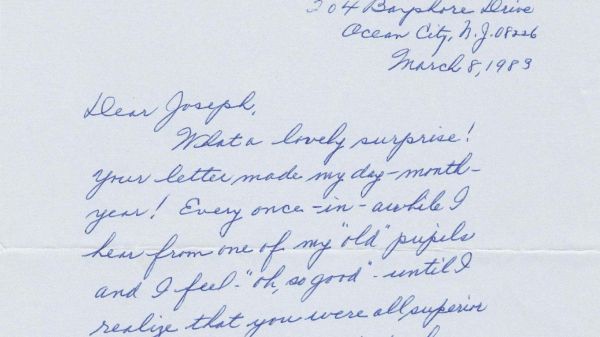 204 Bayshore Drive
Ocean City, N.J. 08226
March 8, 1983
Dear Joseph,
What a lovely surprise!
Your letter made my day-month-
year! Every once-in-awhile I
hear from one of my "old" pupils
and I feel-"oh, so good"-until I
realize that you were all, superior